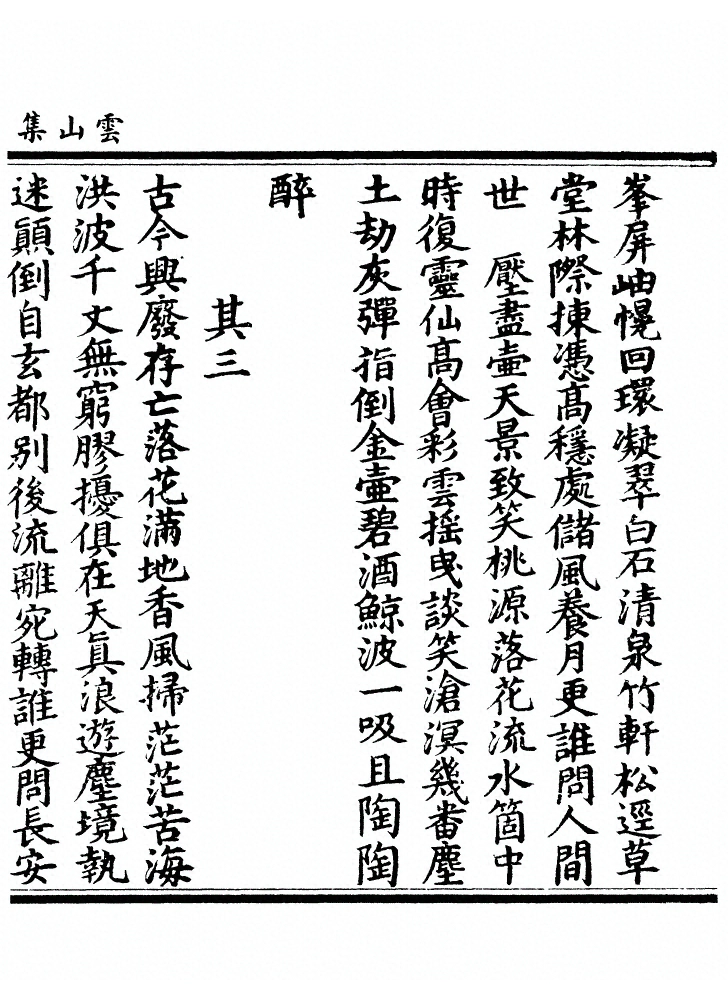 雲山集
峯屏岫幌回環凝翠白石清泉竹軒松逕草
堂林際揀憑高穩處儲風養月更誰問人間
世　壓盡壺天景致笑桃源落花流水箇中
時復靈仙高會彩雲摇曳談笑滄溟幾番塵
土劫灰彈指倒金壺碧酒鯨波一吸且陶陶
醉
其三
古今興廢存亡落花滿地香風掃茫茫苦海
洪波千丈無窮膠擾俱在天真浪遊塵境執
迷顚倒自玄都别後流離宛轉誰更問長安